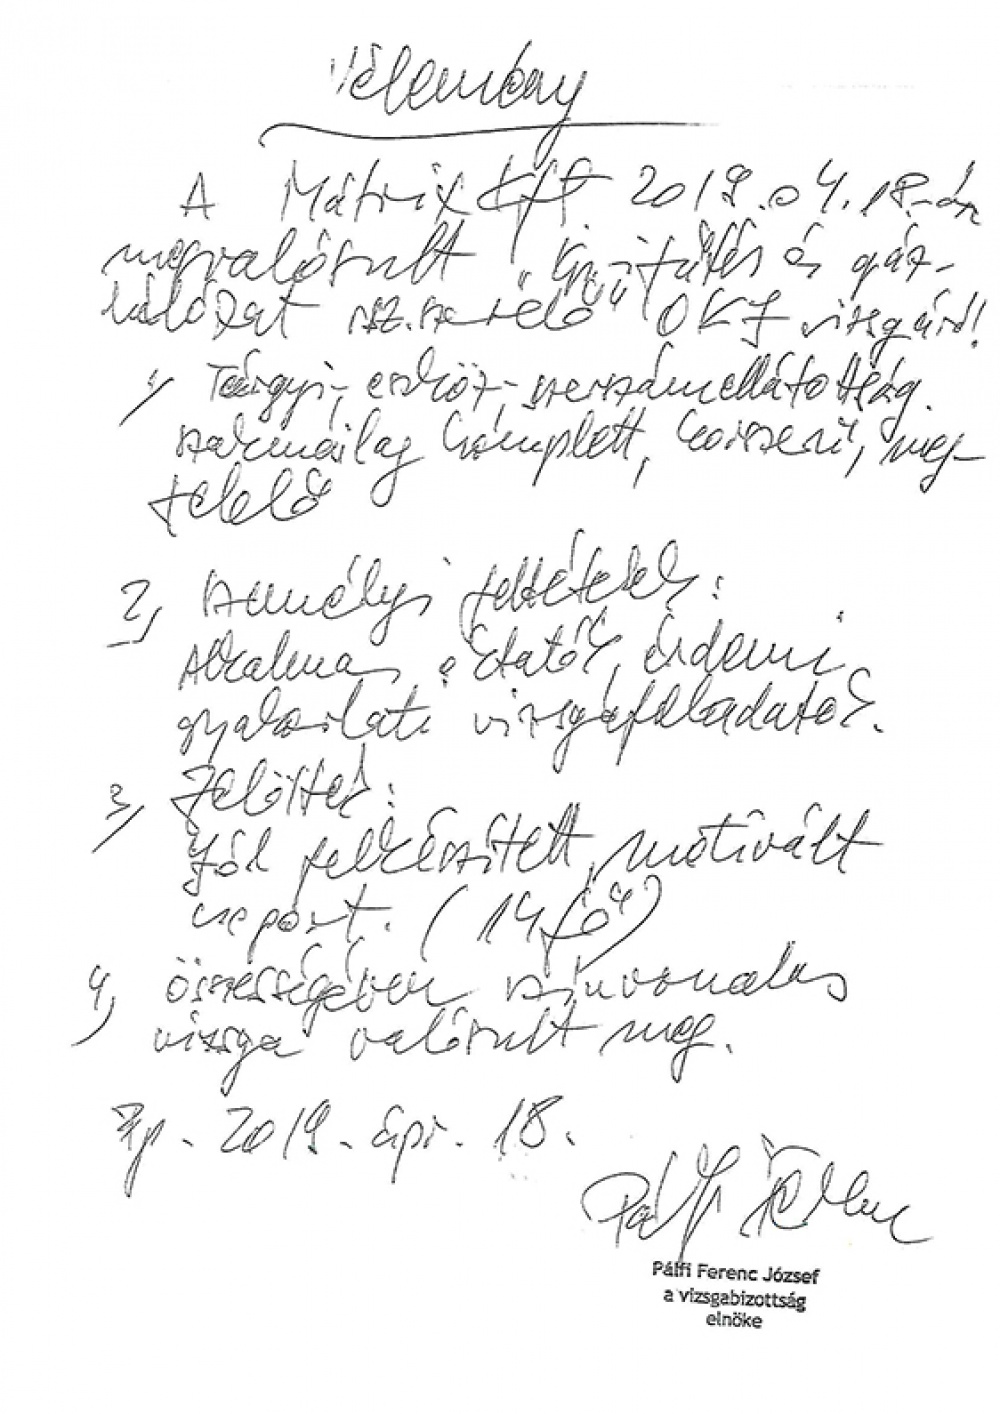 Vélemény
A Mátrix Kft 2019.04.18-án
megvalósult „Központifűtés és gáz-
hálózat rsz. szerelő" OKJ vizsgáról!
1, Tárgyi-, eszköz-, szerszámellátottság.
szakmailag komplett, korszerű, meg-
felelő
2, személyi feltételek:
Alkalmas oktatók, érdemi
gyakorlati vizsgafeladatok.
3, Jelöltek:
Jól felkészített, motivált
csoport. (14 fő)
4, összességében színvonalas
vizsga valósult meg.
Bp. 2019. ápr. 18.
Pálfi Ferenc
Pálfi Ferenc József
a vizsgabizottság
elnöke